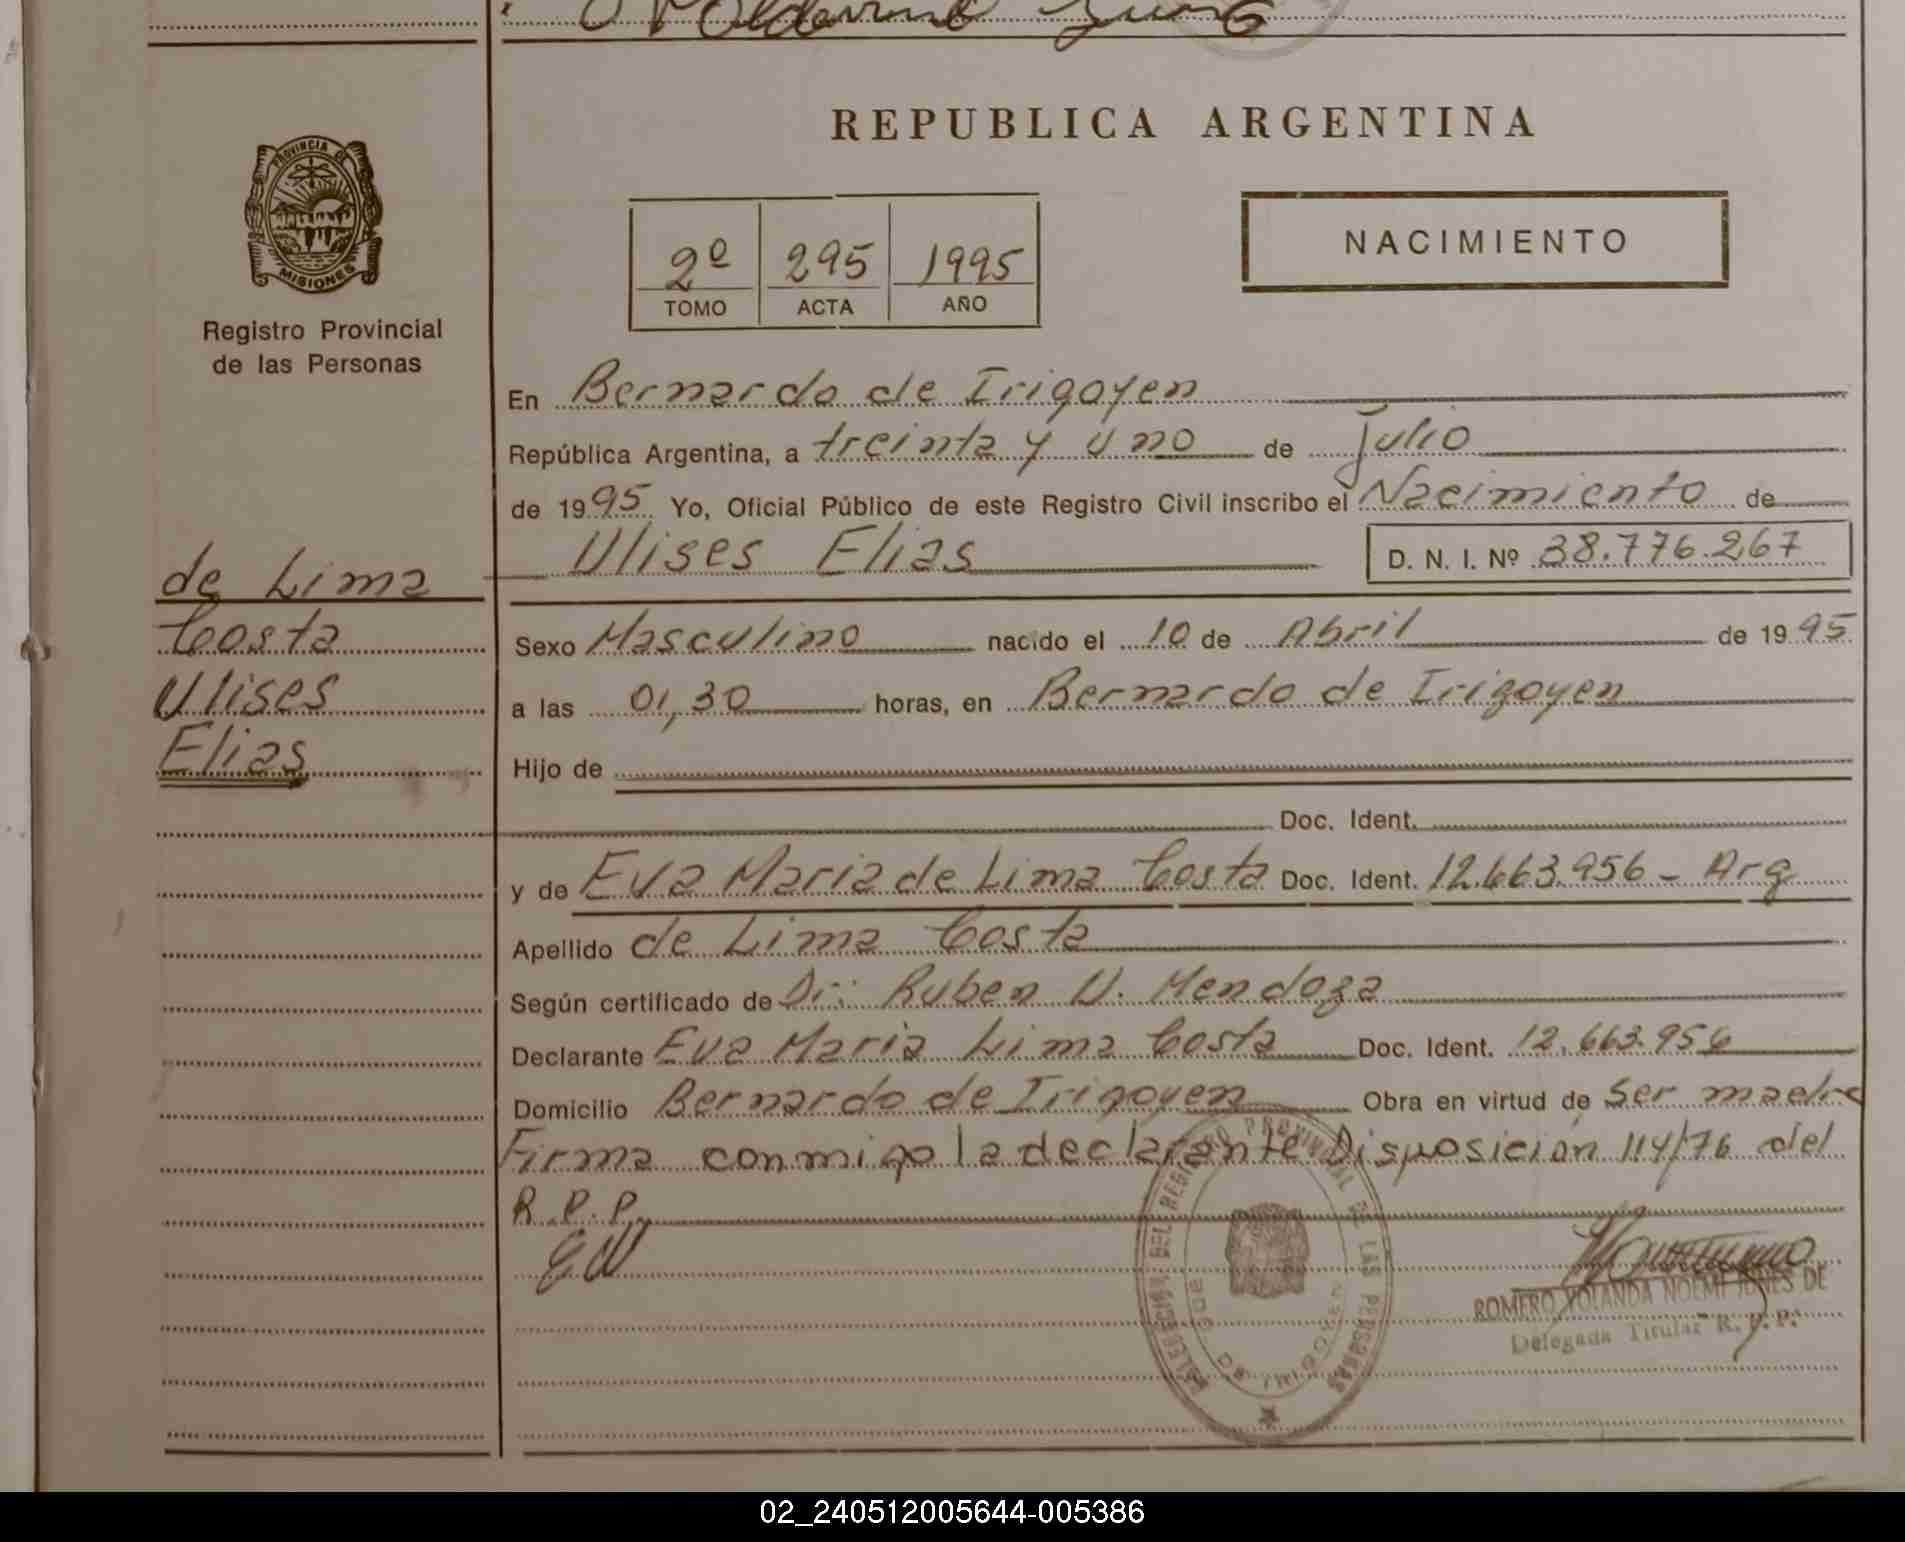 REPUBLICA ARGENTINA
PROVINCIA DE
MISIONES
Registro Provincial
de las Personas
2º 295 1995
TOMO ACTA AÑO
NACIMIENTO
En Bernardo de Irigoyen
República Argentina, a treinta y uno de Julio
de 1995 Yo, Oficial Público de este Registro Civil inscribo el Nacimiento de
Ulises Elias D. N. I. Nº 38.776.267
de Lima
Costa
Ulises
Elias
Sexo Masculino nacido el 10 de Abril de 1995
a las 01,30 horas, en Bernardo de Irigoyen
Hijo de
Doc. Ident.
y de Eva Maria de Lima Costa Doc. Ident. 12.663.956 - Arg
Apellido de Lima Costa
Según certificado de Dr: Ruben U. Mendoza
Declarante Eva Maria Lima Costa Doc. Ident. 12.663.956
Domicilio Bernardo de Irigoyen Obra en virtud de Ser madre
Firma conmigo la declarante Disposición 114/76 del
R.P.P.
DEL REGISTRO PROVINCIAL DE LAS PERSONAS
DE IRIGOYEN
ROMERO YOLANDA NOEMI JONES DE
Delegada Titular R. P. P.
02_240512005644-005386